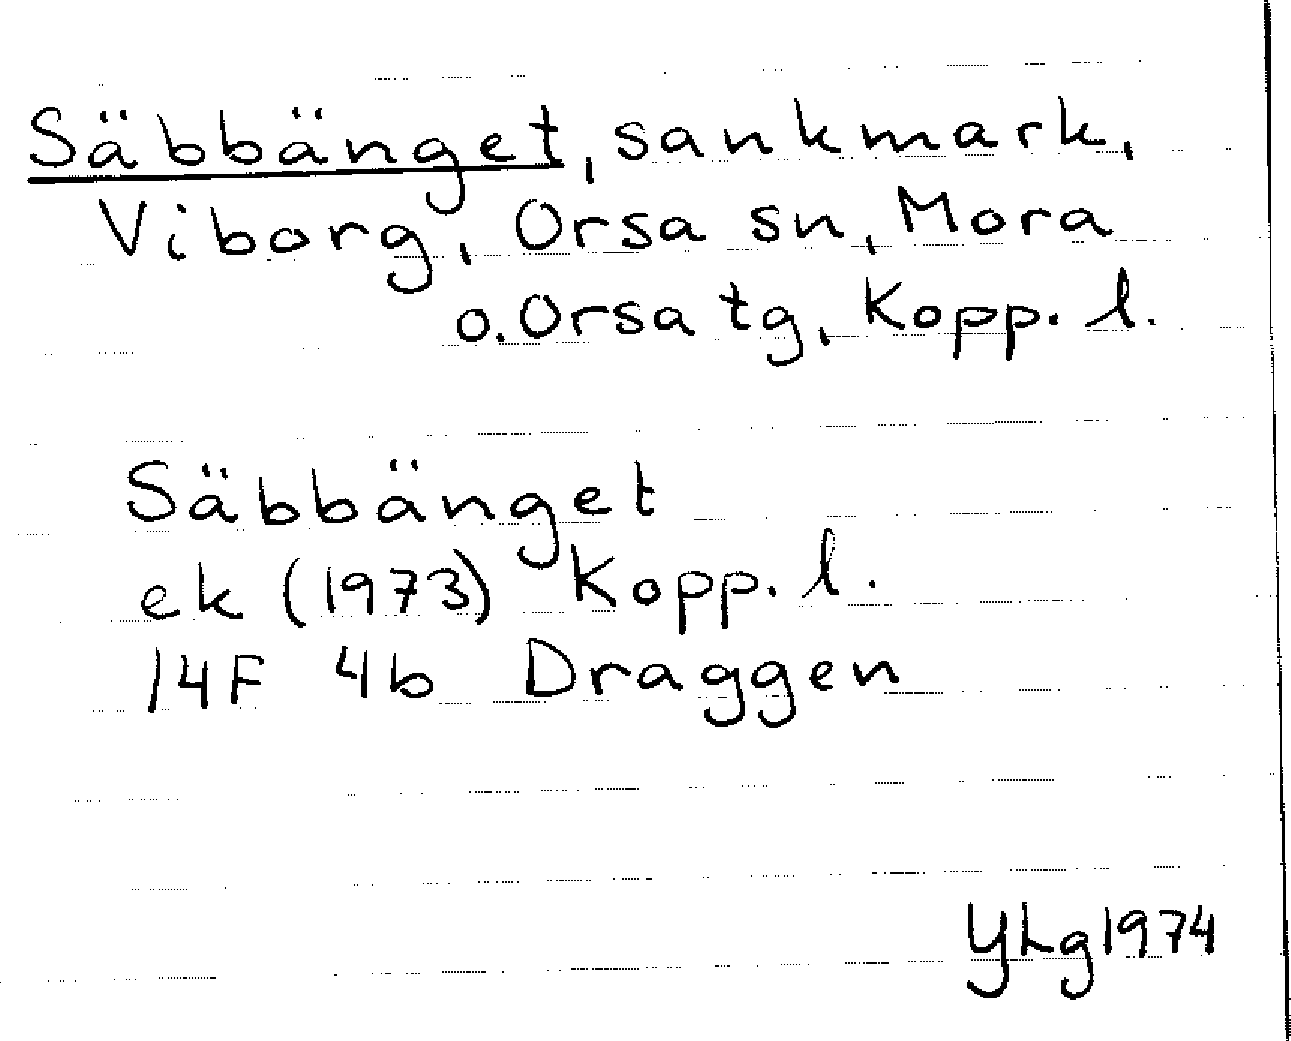 Säbbänget, sankmark,
Viborg, Orsa sn, Mora
o. Orsa tg, Kopp. l.
Säbbänget
ek (1973) Kopp. l.
14F 4b Draggen
YLg 1974